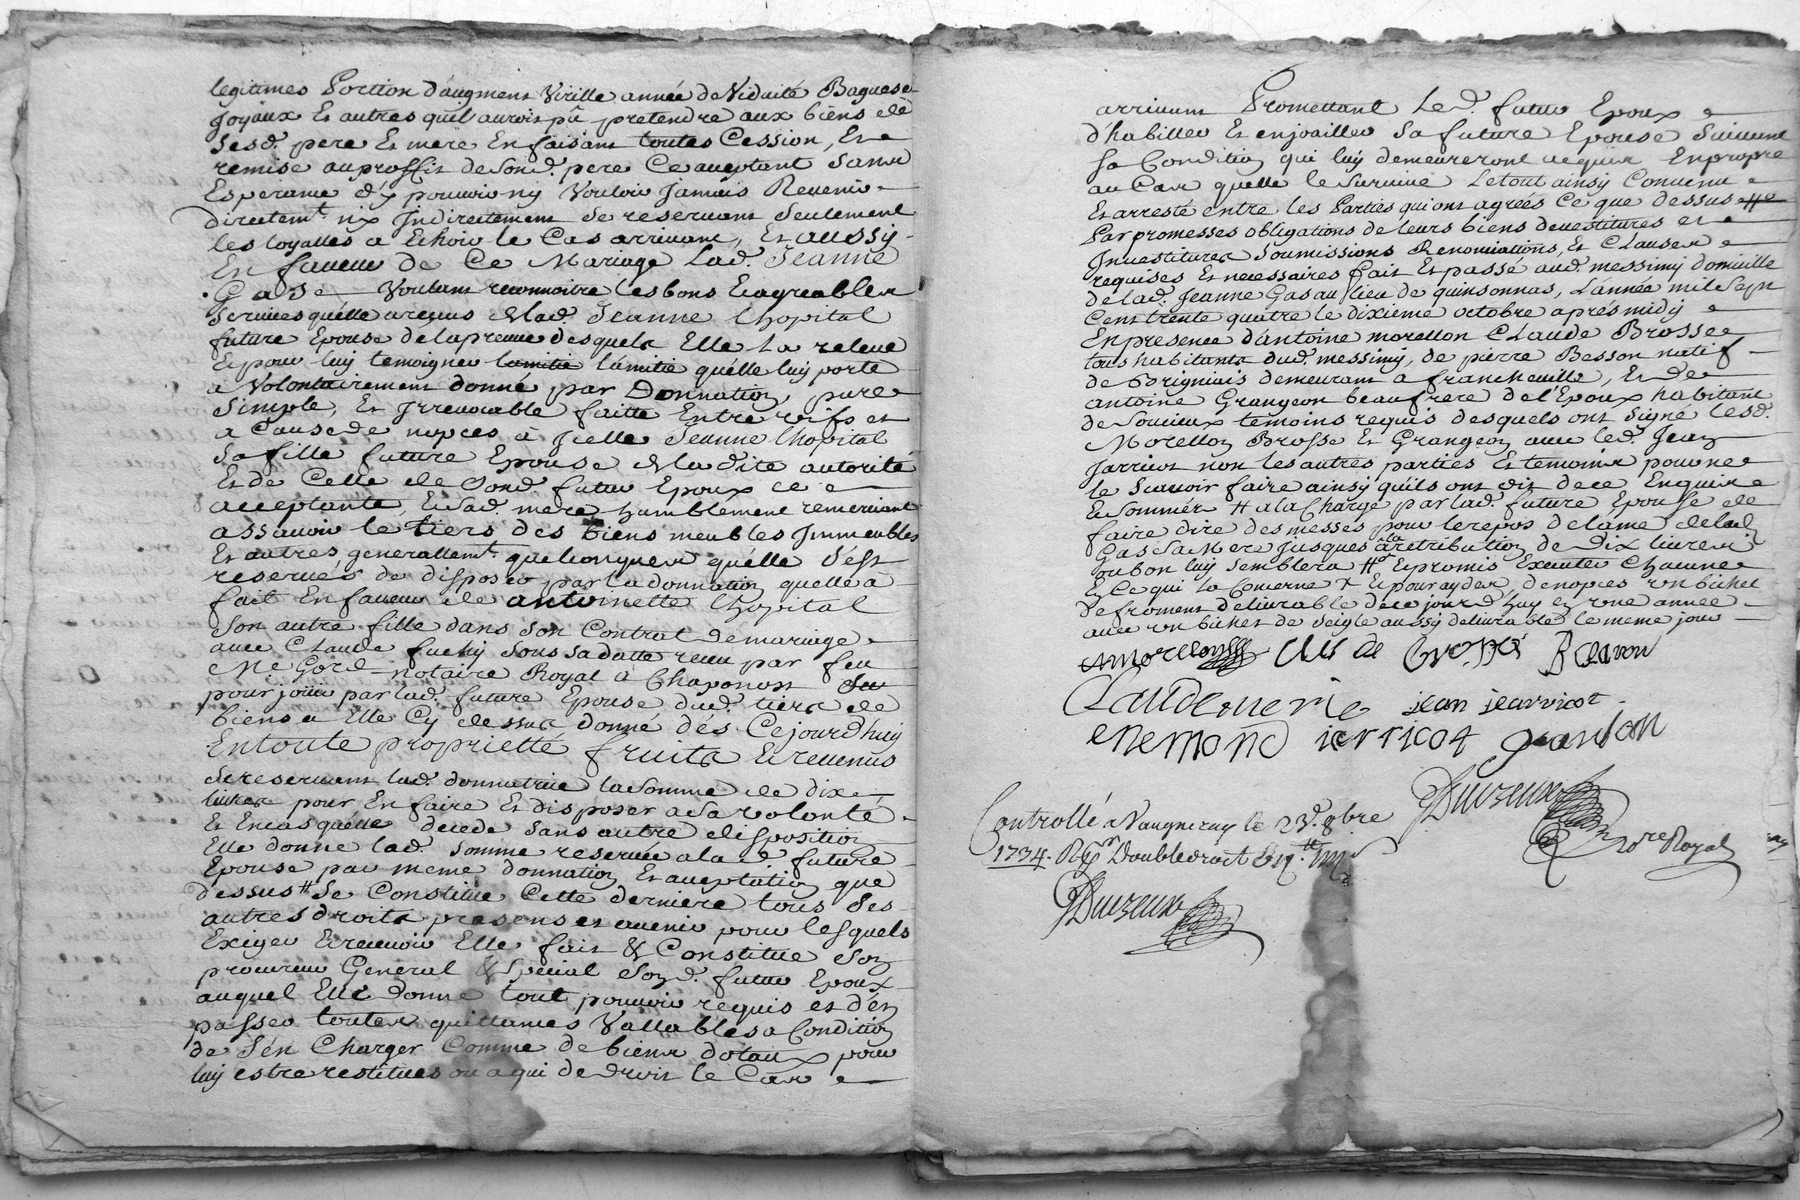 legitimes Portion d'augment Virille année de Viduité Bagues et
Joyaux Et autres quil auroit pû pretendre aux biens de
Sesd. pere Et mere En faisant toutes Cession, Et
remise au proffit de Sond. pere Ce aceptant Sans
Esperance d'y pouvoir ny Vouloir Jamais Revenir
directemt. ny Indirectement Se reservant Seulement
les loyalles a Echoir le Cas arrivant, Et aussy
En faveur de Ce Mariage Lad. Jeanne
Gas Voulant reconnoitre les bons Et agreables
Services quelle a reçus de lad. Jeanne lhopital
future Epouse de la preuve desquels Elle la releve
Et pour luy temoigner lamitie l'amitie quelle luy porte
a Volontairement donné par Donnation, pure
Simple, Et Irrevocable faitte Entre vifs et
a Cause de nopces à Jcelle Jeanne lhopital
Sa fille future Epouse de la dite autorité
Et de Celle de Sond. futur Epoux ce
acceptante, Et Sad. mere humblement remerciant
assavoir le tiers des biens meubles Jmmeubles
Et autres generallemt. quelconques quelle S'est
reservés de disposer par la donnation quelle à
fait En faveur de antoinette lhopital
Son autre fille dans Son Contrat de mariage
avec Claude fuchy Sous Sa datte recu par feu
Me. Gord notaire Royal à Chaponost
pour jouir par lad. future Epouse dud. tiers de
biens a Elle Cy dessus donné dés Cejourd'huy
En toute proprietté fruits Et revenus
Se reservant lad. donnatrice la Somme de dix
livres pour En faire Et disposer a Sa volonté
Et En cas quelle decede Sans autre disposition
Elle donne lad. Somme reservée a lad. future
Epouse par meme donnation Et aceptation que
dessus # Se Constitue Cette derniere tous Ses
autres droits presens et avenir pour lesquels
Exiger Et recevoir Elle fait & Constitue Son
procureur General & Special Sond. futur Epoux
auquel Elle donne tout pouvoir requis et d'en
passer toutes quittances Vallables a Condition
de S'en Charger Comme de biens dotaux pour
luy estre restitues ou a qui de droit le Cas
arrivant Promettant Led. futur Epoux
d'habiller Et enjoailler Sa future Epouse Suivant
Sa Condition qui luy demeureront acquis En propre
au Cas quelle le Survive Le tout ainsy Convenu
Et arresté entre les Parties qui ont agreés Ce que dessus
Par promesses obligations de leurs biens devestitures et
Jnvestitures Soumissions Renonciations, Et Clauses
requises Et necessaires fait Et passé aud. messimy domicille
de lad. Jeanne Gas au lieu de quinsonnas, L'année mil Sept
Cent trente quatre le dixieme octobre aprés midy
En presence d'antoine morellon Claude Brosse
tous habitants dud. messimy, de pierre Besson natif
de Brigniais demeurant a francheville, Et de
antoine Grangeon beaufrere de l'Epoux habitant
de Soucieux temoins requis desquels ont Signé lesd.
Morellon Brosse Et Grangeon avec led. Jean
Jarricot non les autres parties Et temoins pour ne
le Scavoir faire ainsy quils ont dit de ce Enquis
Et Sommés # a la Charge par lad. future Epouse de
faire dire des messes pour le repos de lame de lad.
Gas Sa Mere Jusques à la retribution de dix livres
ou bon luy Semblera # Et promis Executer Chacune
En Ce qui la Concerne + Et pour ayder, de nopces un bichet
de froment delivrable de ce jourd'huy en une année
avec un bichet de Seigle aussy delivrable le meme jour
amorellon Clade Brossé B Claron
Claudeneris jean jearricot
enemond iarricot granjon
Controllé a Vaugneray le 23e. 8bre
1734. Rçu Double droit
Duvzeux
no.re Royal
Duvzeux